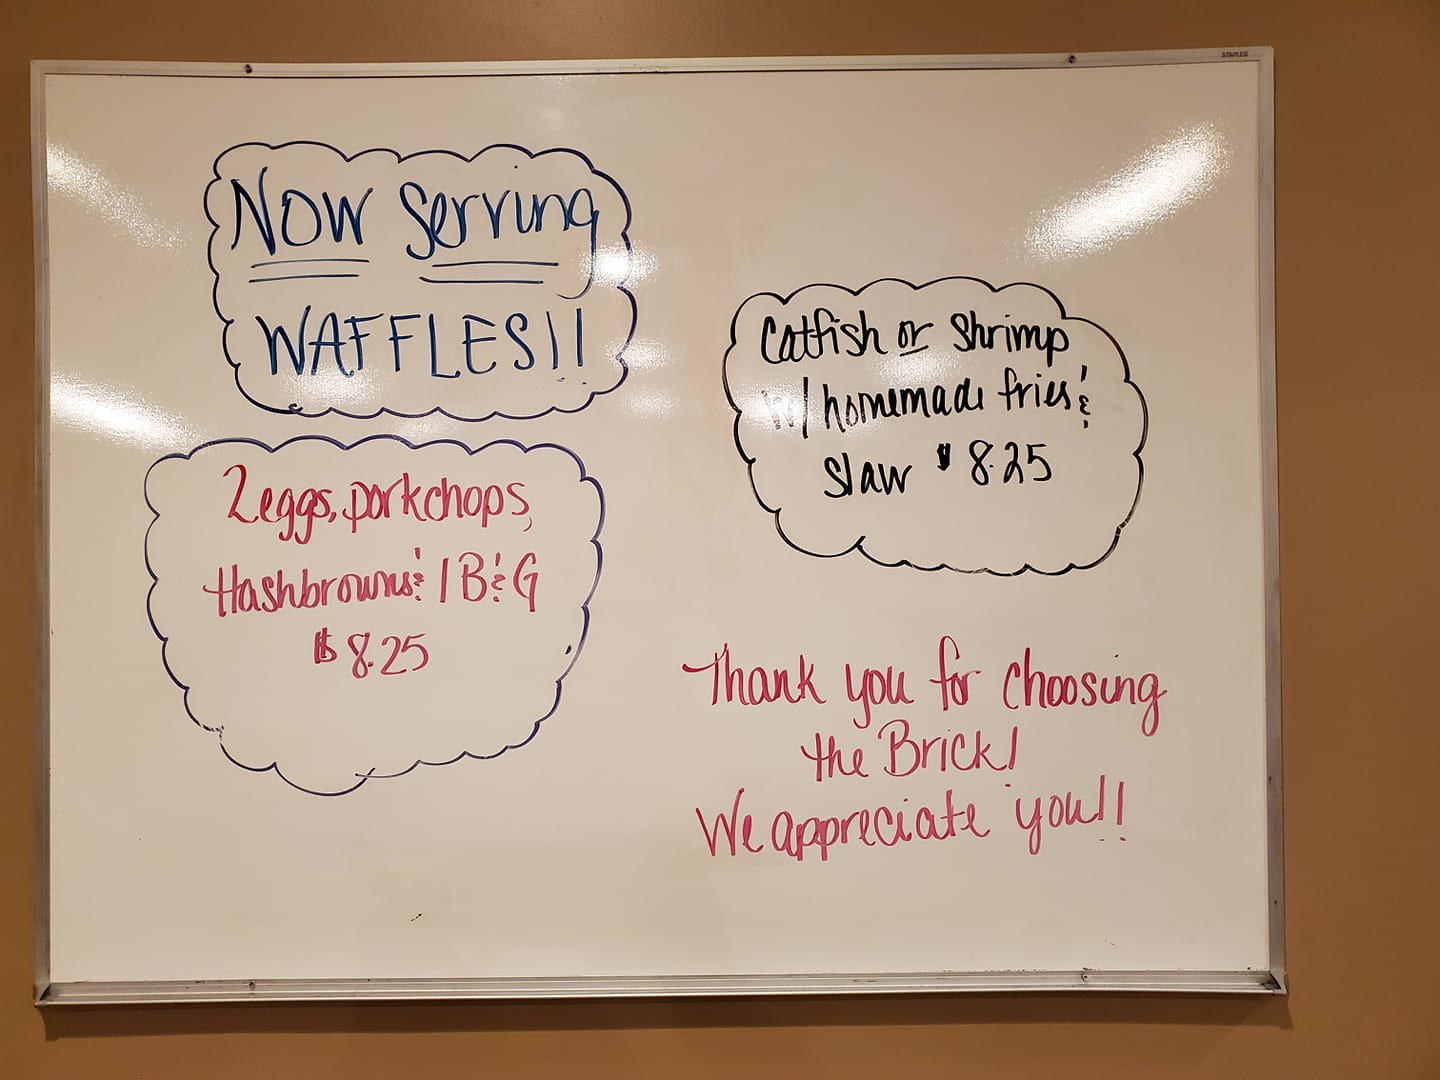 STAPLES
Now Serving
WAFFLES!!
2 eggs, porkchops,
Hashbrowns & 1 B & G
$8.25
Catfish or Shrimp
w/ homemade fries &
slaw $8.25
Thank you for choosing
the Brick!
We appreciate you!!